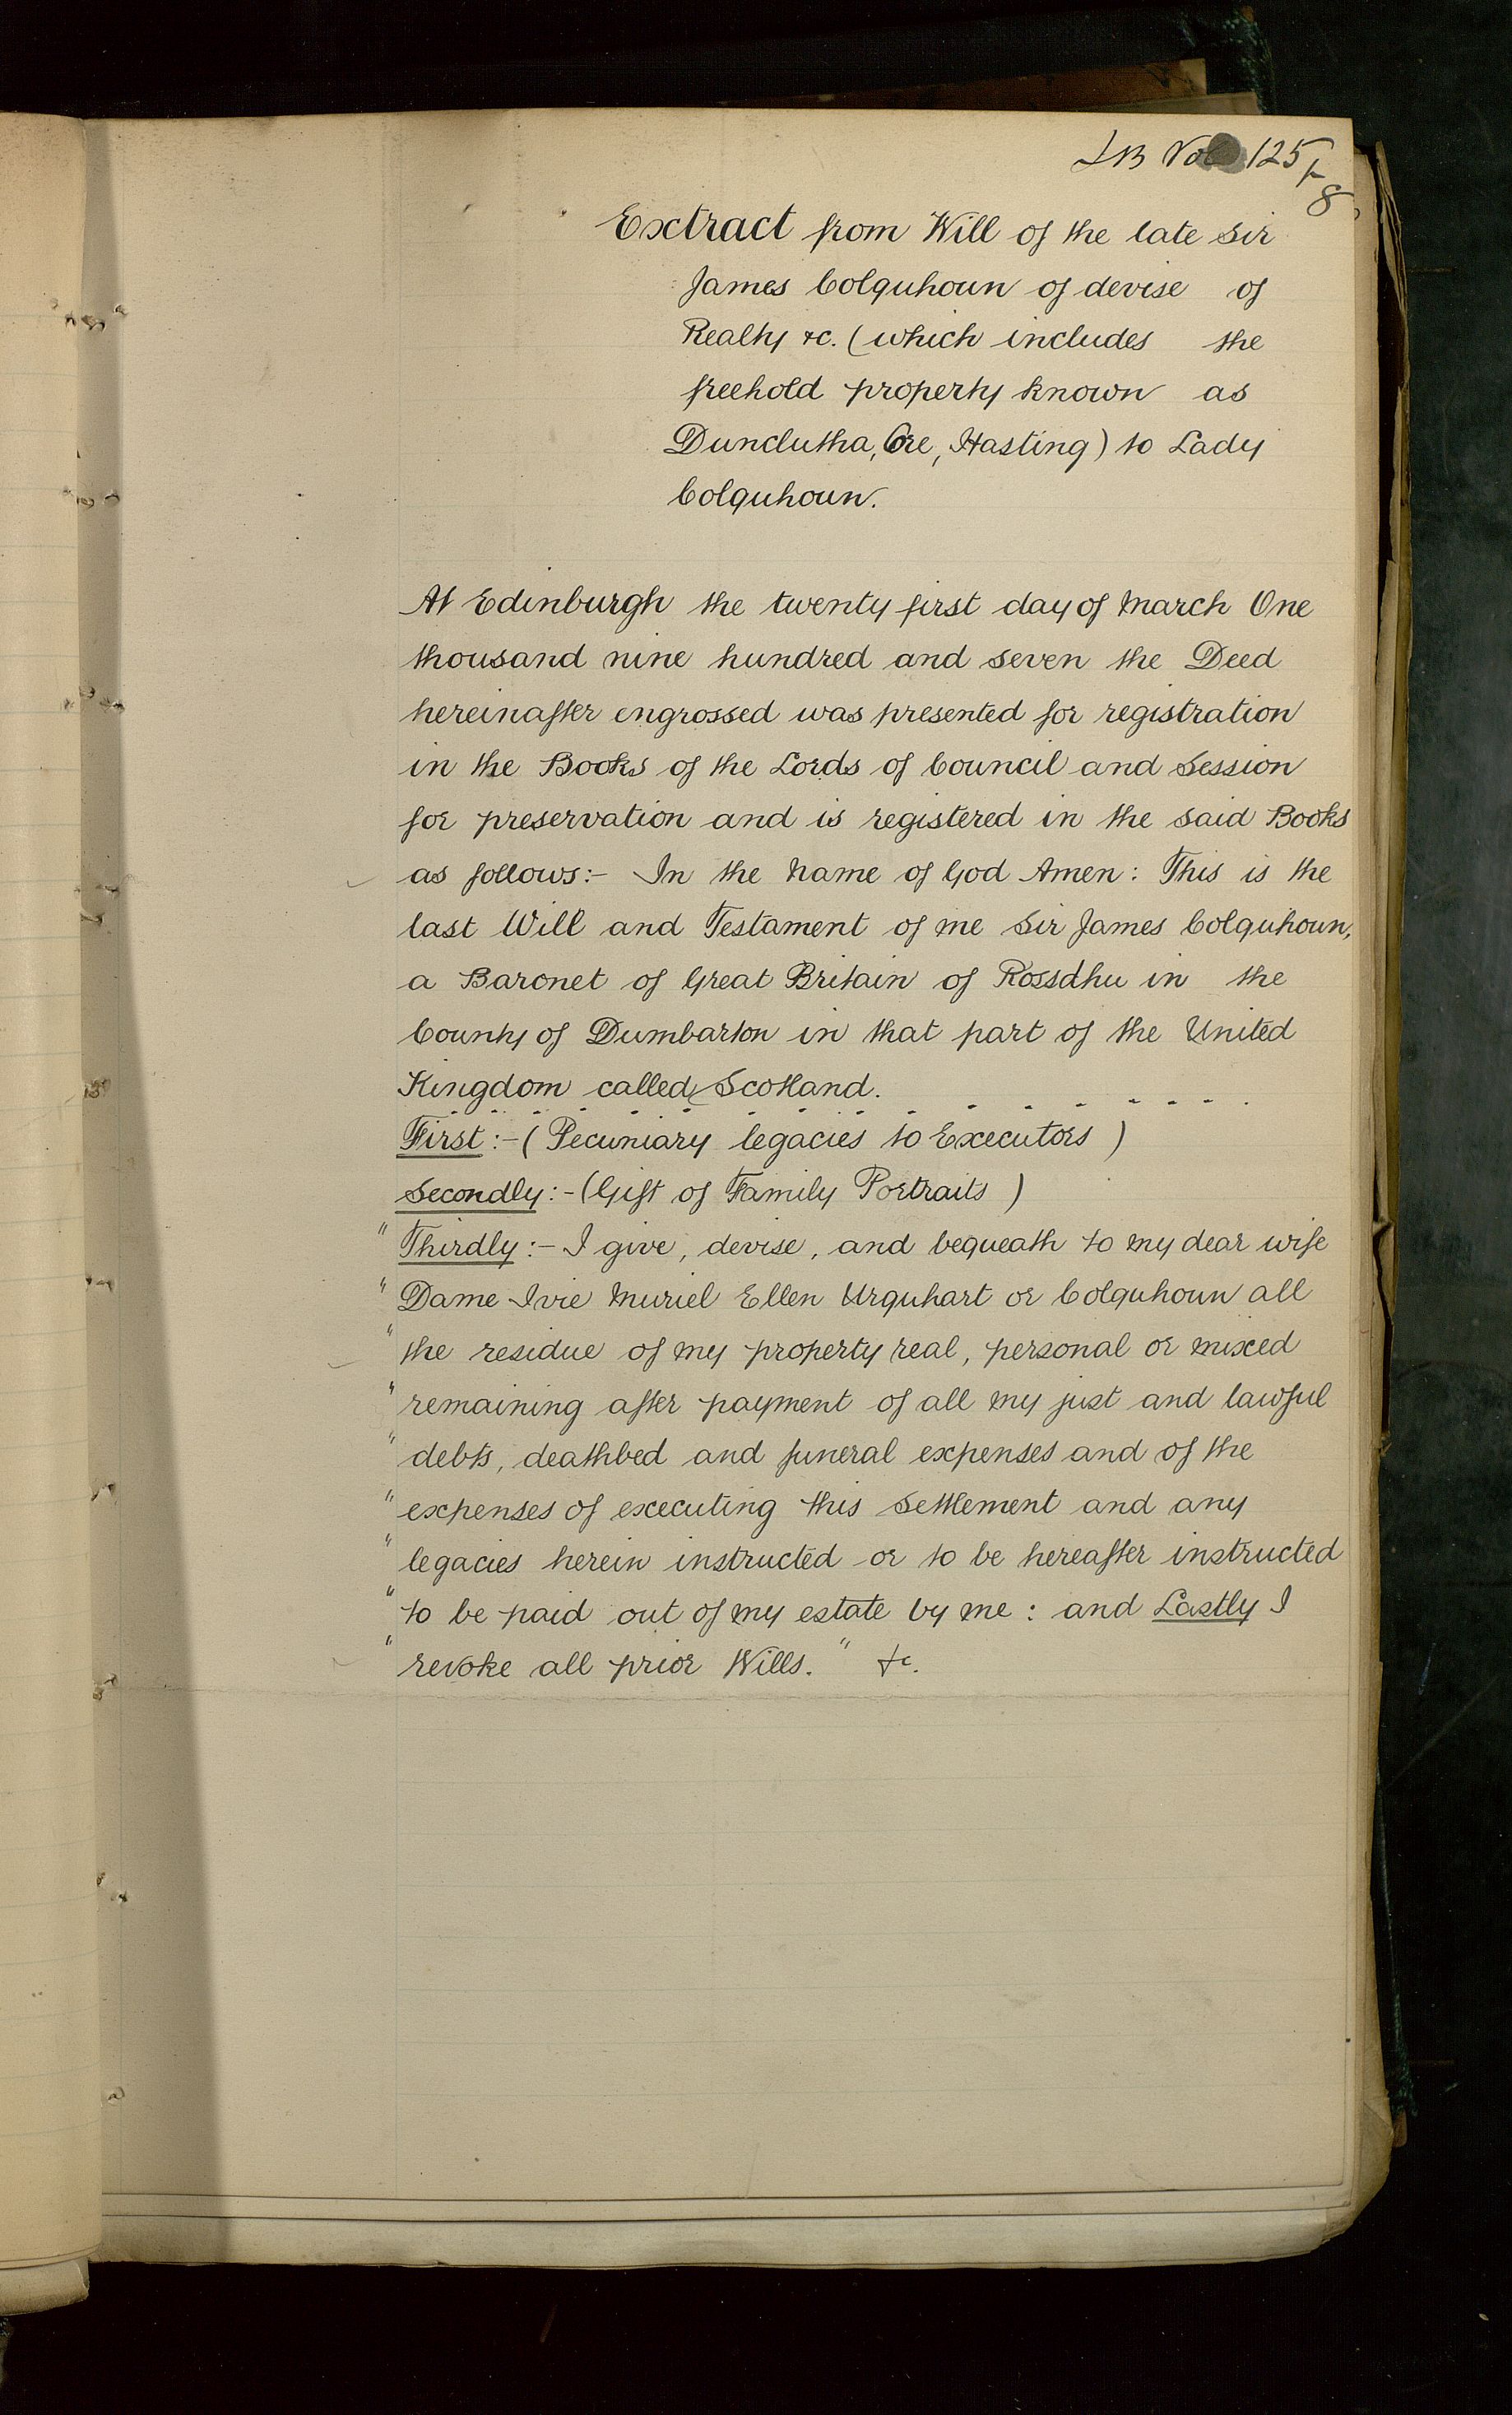 LB Vol 125
8
Extract from Will of the late Sir
James Colquhoun of devise of
Realty &c. (which includes the
freehold property known as
Dunclutha, Ore, Hasting) to Lady
Colquhoun.
At Edinburgh the twenty first day of March One
thousand nine hundred and seven the Deed
hereinafter engrossed was presented for registration
in the Books of the Lords of Council and Session
for preservation and is registered in the said Books
as follows:- In the Name of God Amen: This is the
last Will and Testament of me Sir James Colquhoun,
a Baronet of Great Britain of Rossdhu in the
County of Dumbarton in that part of the United
Kingdom called Scotland.
First:- (Pecuniary legacies to Executors)
Secondly:- (Gift of Family Portraits)
" Thirdly:- I give, devise, and bequeath to my dear wife
" Dame Ivie Muriel Ellen Urquhart or Colquhoun all
" the residue of my property real, personal or mixed
" remaining after payment of all my just and lawful
" debts, deathbed and funeral expenses and of the
" expenses of executing this Settlement and any
" legacies herein instructed or to be hereafter instructed
" to be paid out of my estate by me: and Lastly I
" revoke all prior Wills." &c.